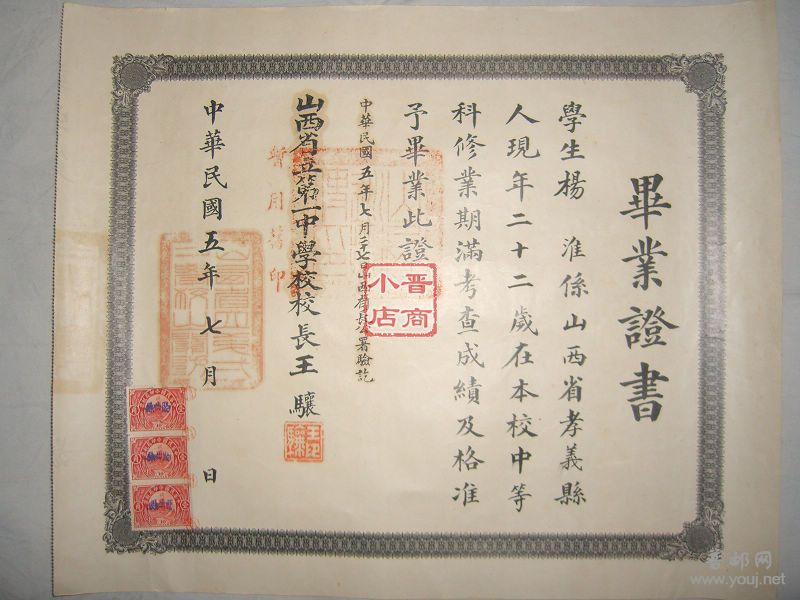 畢業證書
學生楊 淮係山西省孝義縣
人現年二十二歲在本校中等
科修業期滿考查成績及格准
予畢業此證
中華民國五年七月二十七日山西省長公署驗訖
山西省立第一中學校校長王 驤
暫用舊印
王驤印
中華民國五年七月 日
晋商
小店
www.youj.net